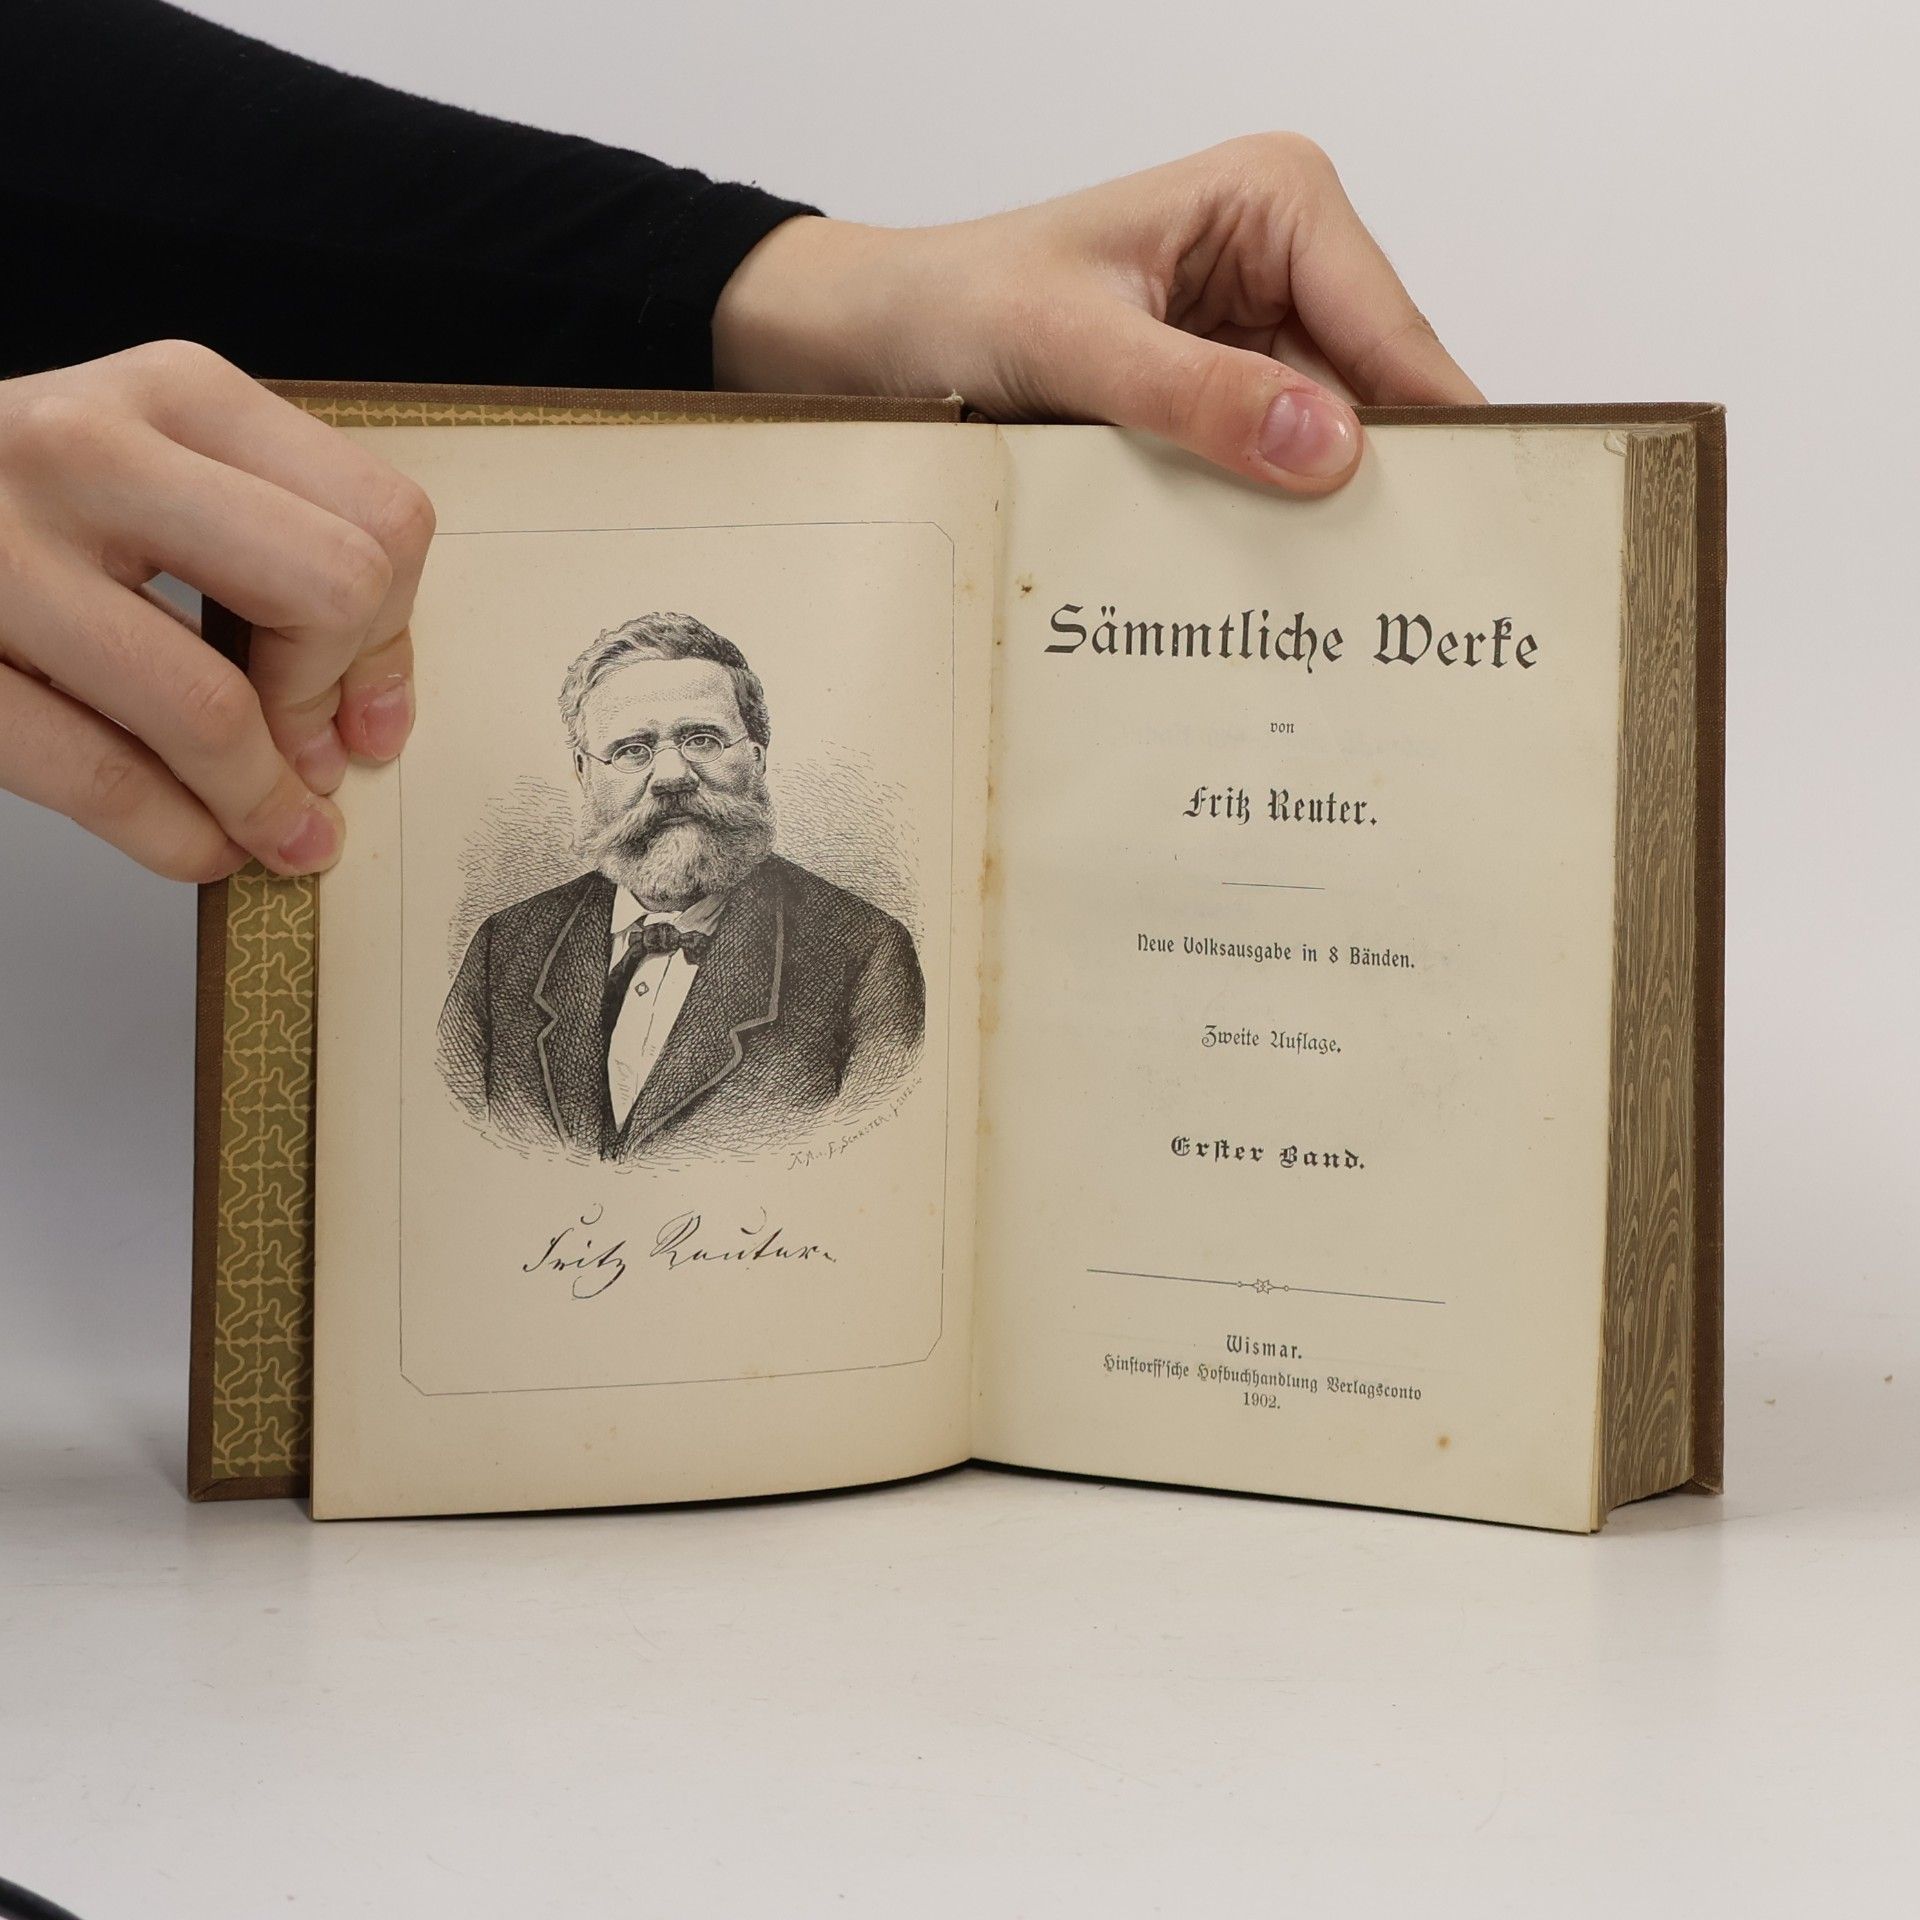 X.A.v.F. SCHRÖTER. LEIPZIG.
Fritz Reuter.
Sämmtliche Werke
von
Fritz Reuter.
Neue Volksausgabe in 8 Bänden.
Zweite Auflage.
Erster Band.
Wismar.
Hinstorff'sche Hofbuchhandlung Verlagsconto
1902.